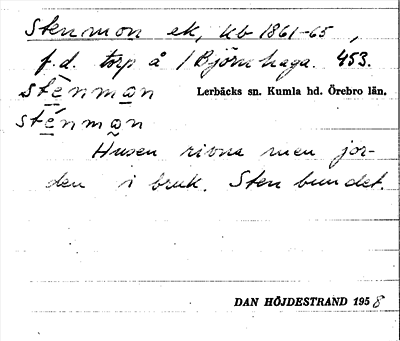 Stenmon ek, kb 1861-65,
f.d. torp å /Björnhaga. 453.
stènman Lerbäcks sn. Kumla hd. Örebro län.
sténman
Husen rivna men jor-
den i bruk. Stenbundet.
DAN HÖJDESTRAND 1958